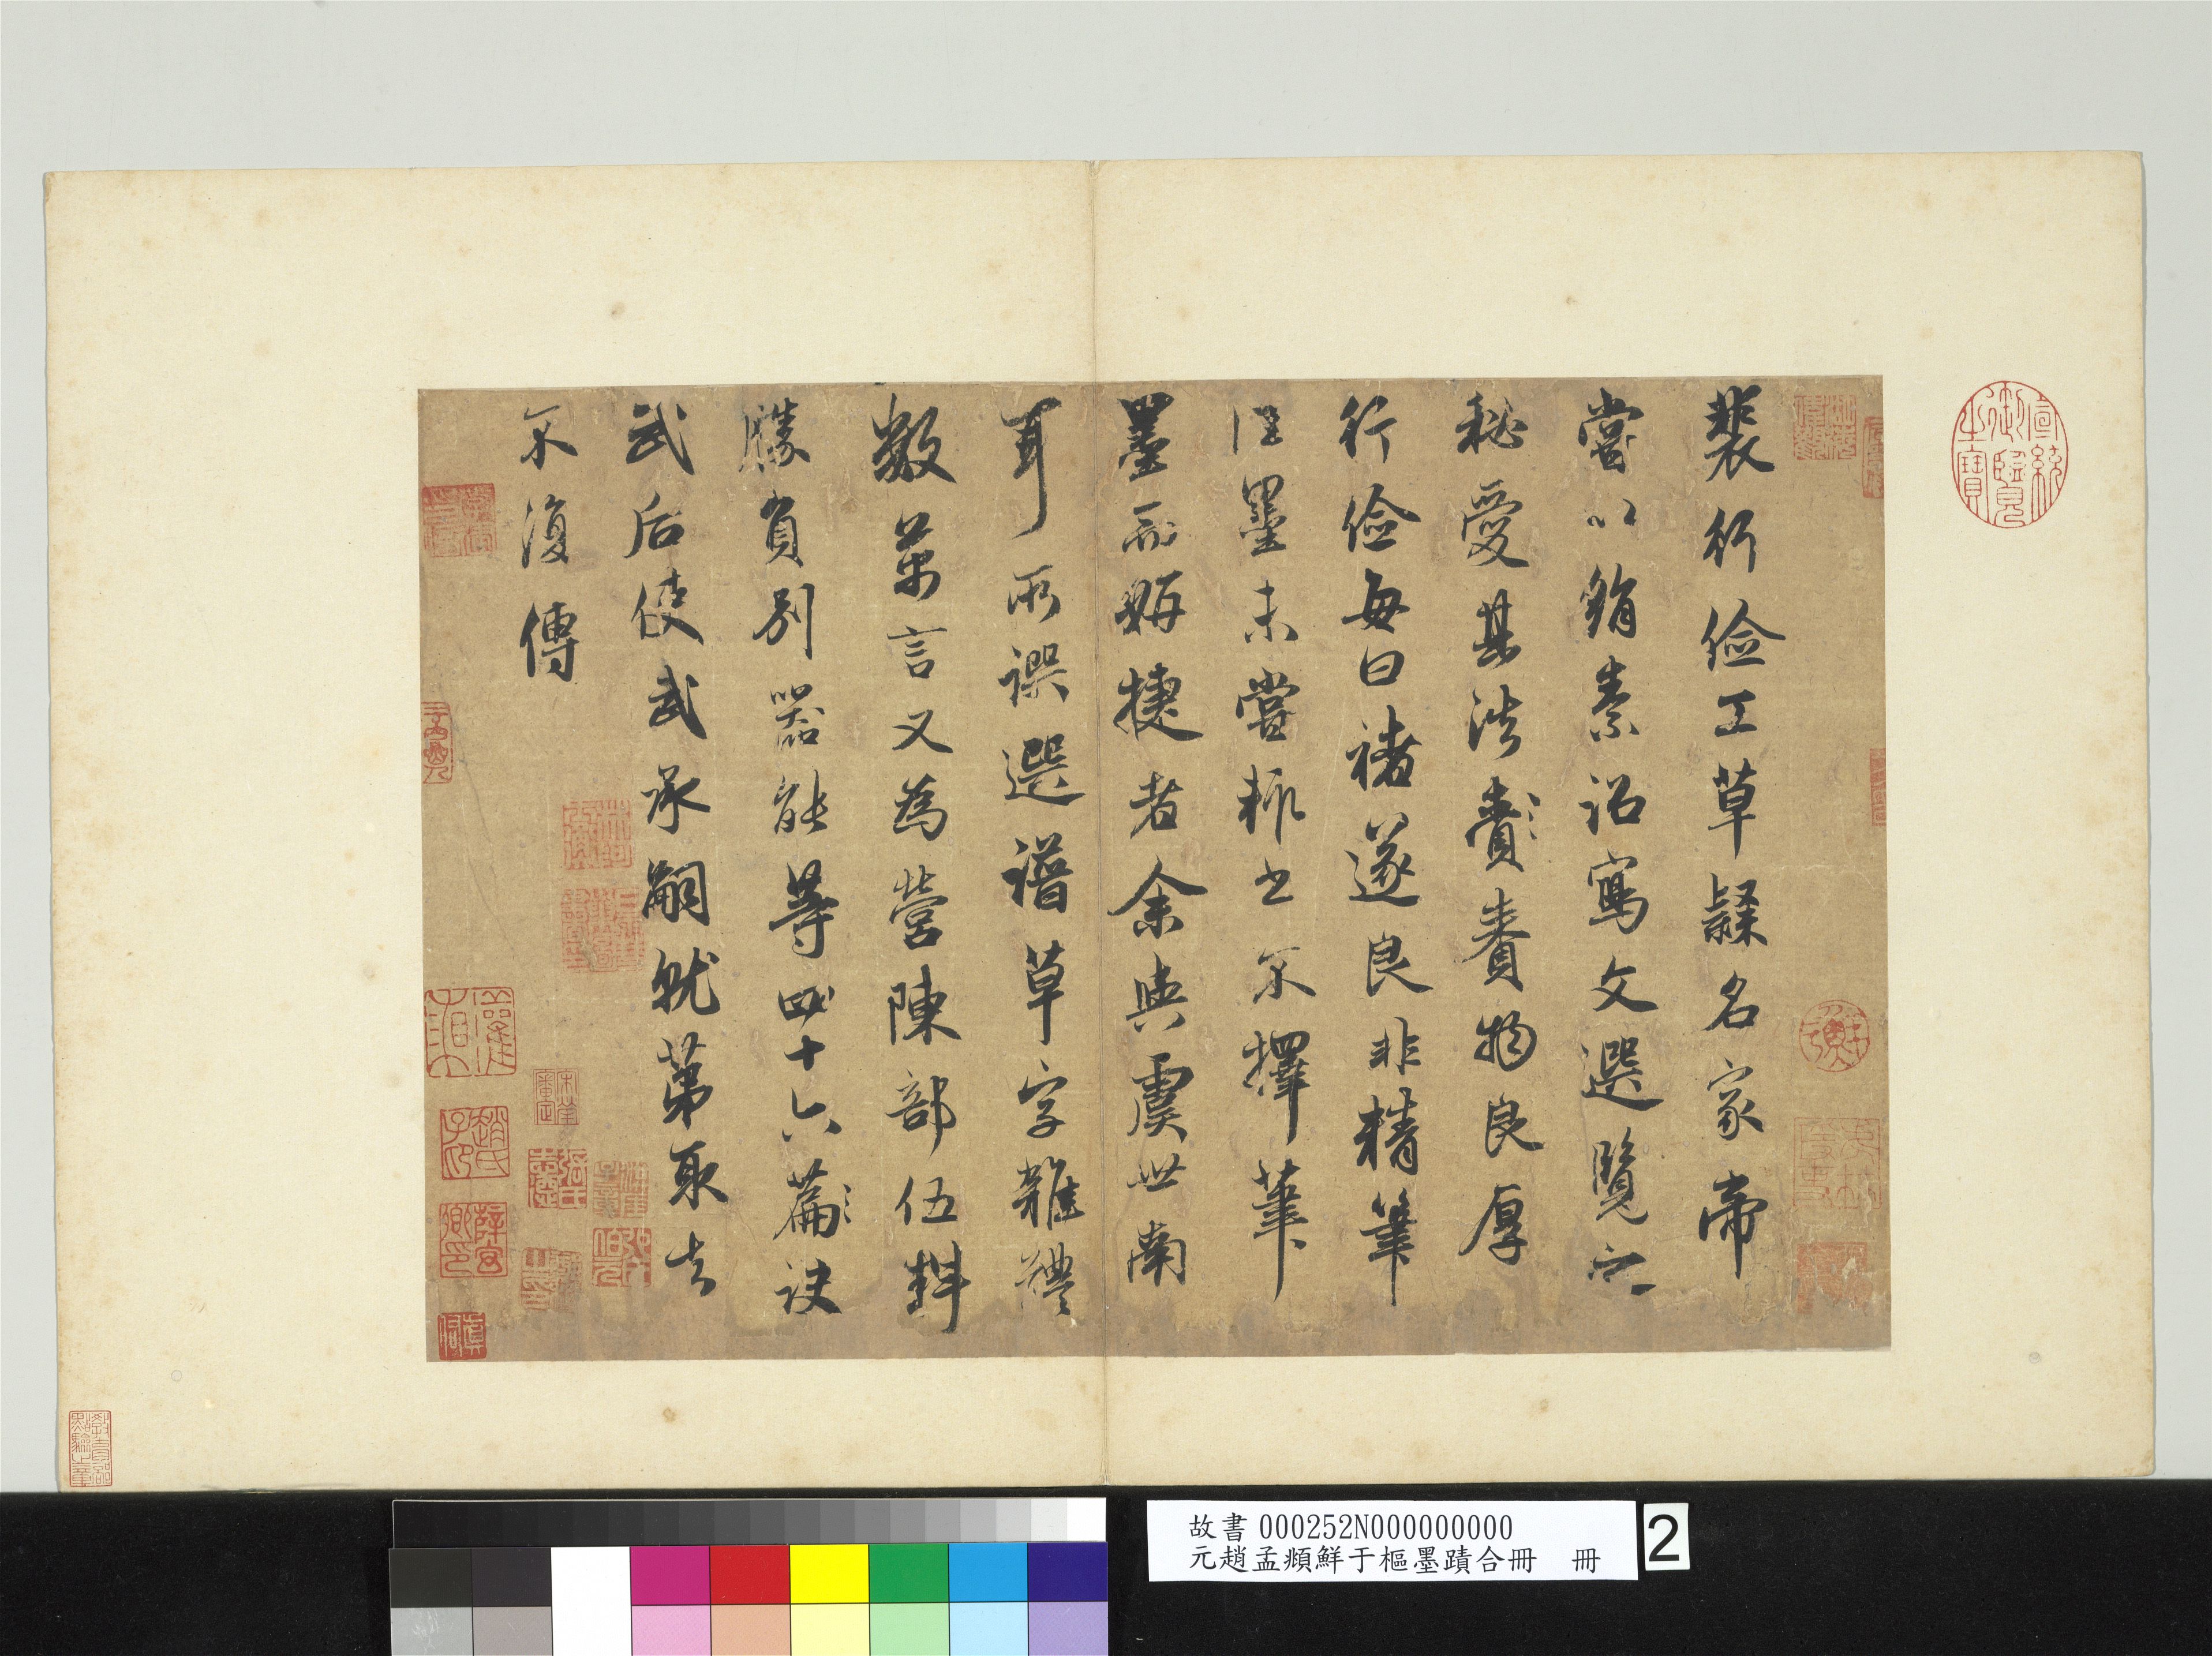 裴行儉工草隸名家帝
嘗以絹素詔寫文選覽之
秘愛其法賷賚物良厚
行儉每曰褚遂良非精筆
佳墨未嘗輒書不擇筆
墨而妍捷者余與虞世南
耳所譔選譜草字雜體
數萬言又為營陳部伍料
勝負別器能等四十六篇訣
武后使武承嗣就第取去
不復傳
宣統御覽之寶
教育部點驗之章
趙氏子昂
薛官卿印
故書 000252N000000000
元趙孟頫鮮于樞墨蹟合冊 冊
2